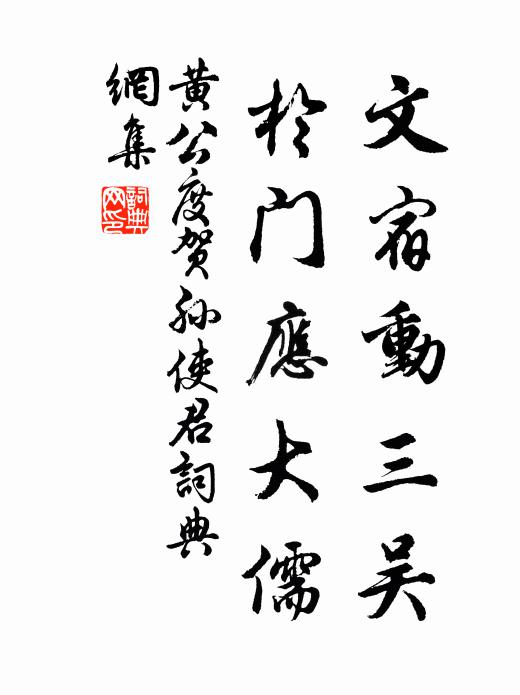 文宿動三吴
於門應大儒
黄公度賀孫使君詞典
網集
詞典网印